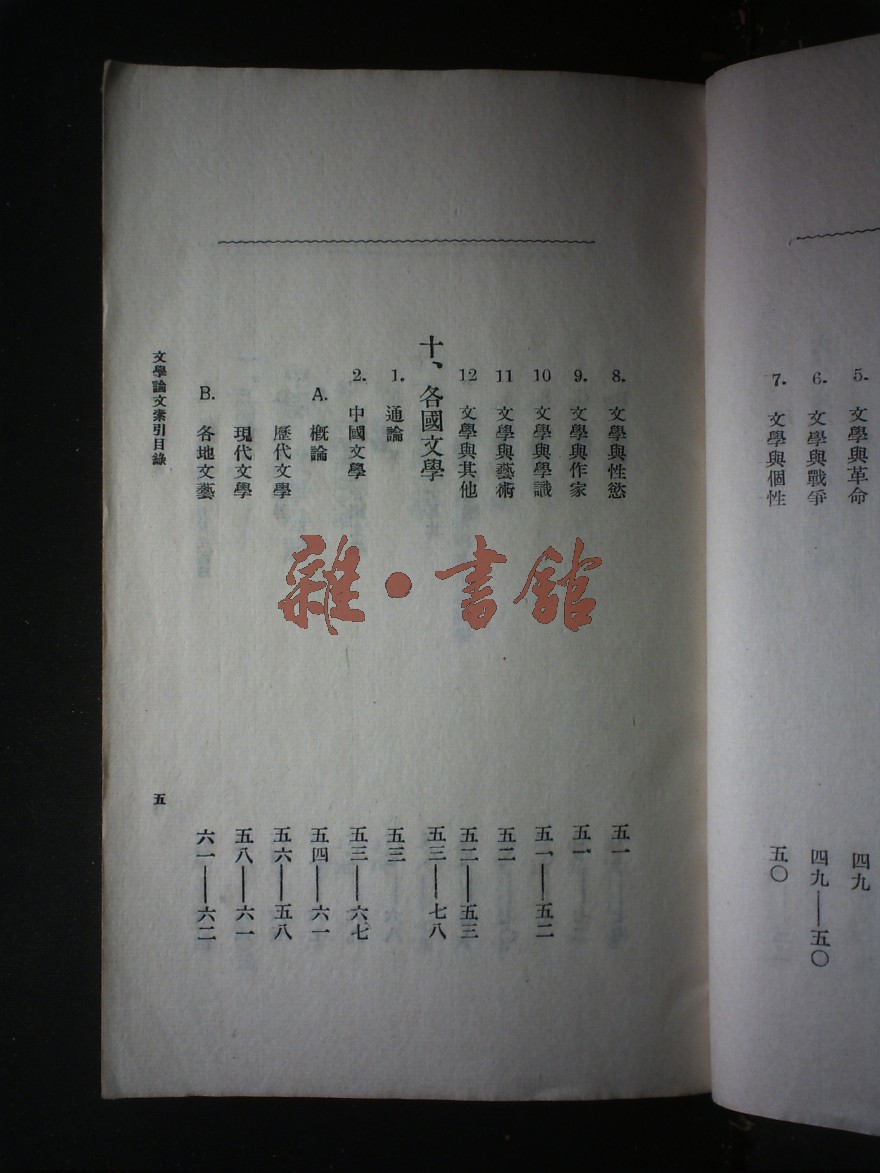 5. 文學與革命 四九
6. 文學與戰爭 四九——五〇
7. 文學與個性 五〇
8. 文學與性慾 五一
9. 文學與作家 五一
10 文學與學識 五一——五二
11 文學與藝術 五二
12 文學與其他 五二——五三
十、各國文學 五三——七八
1. 通論 五三
2. 中國文學 五三——六七
A. 概論 五四——六一
歷代文學 五六——五八
現代文學 五八——六一
B. 各地文藝 六一——六二
文學論文索引目錄 五
雜·書館